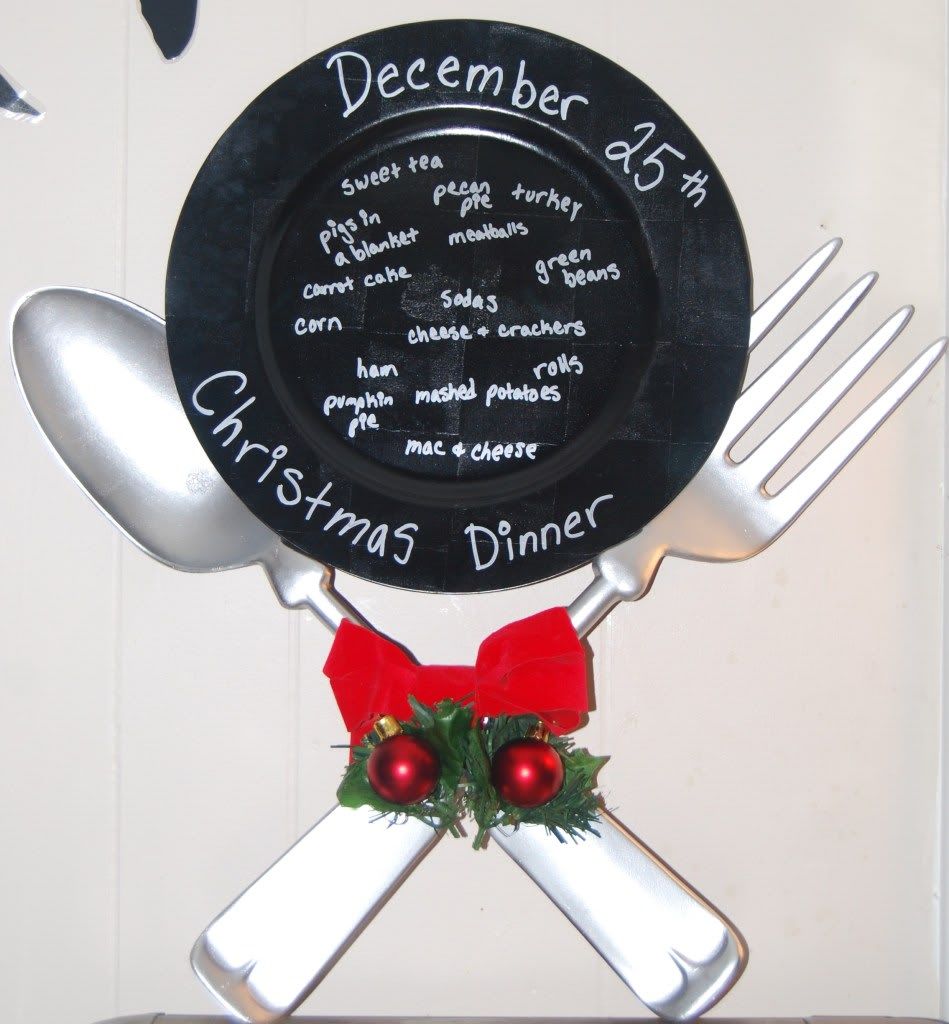 December 25th
sweet tea
pecan
pie
turkey
pigs in
a blanket
meatballs
green
beans
carrot cake
sodas
corn
cheese + crackers
ham
rolls
pumpkin
pie
mashed potatoes
mac & cheese
Christmas Dinner